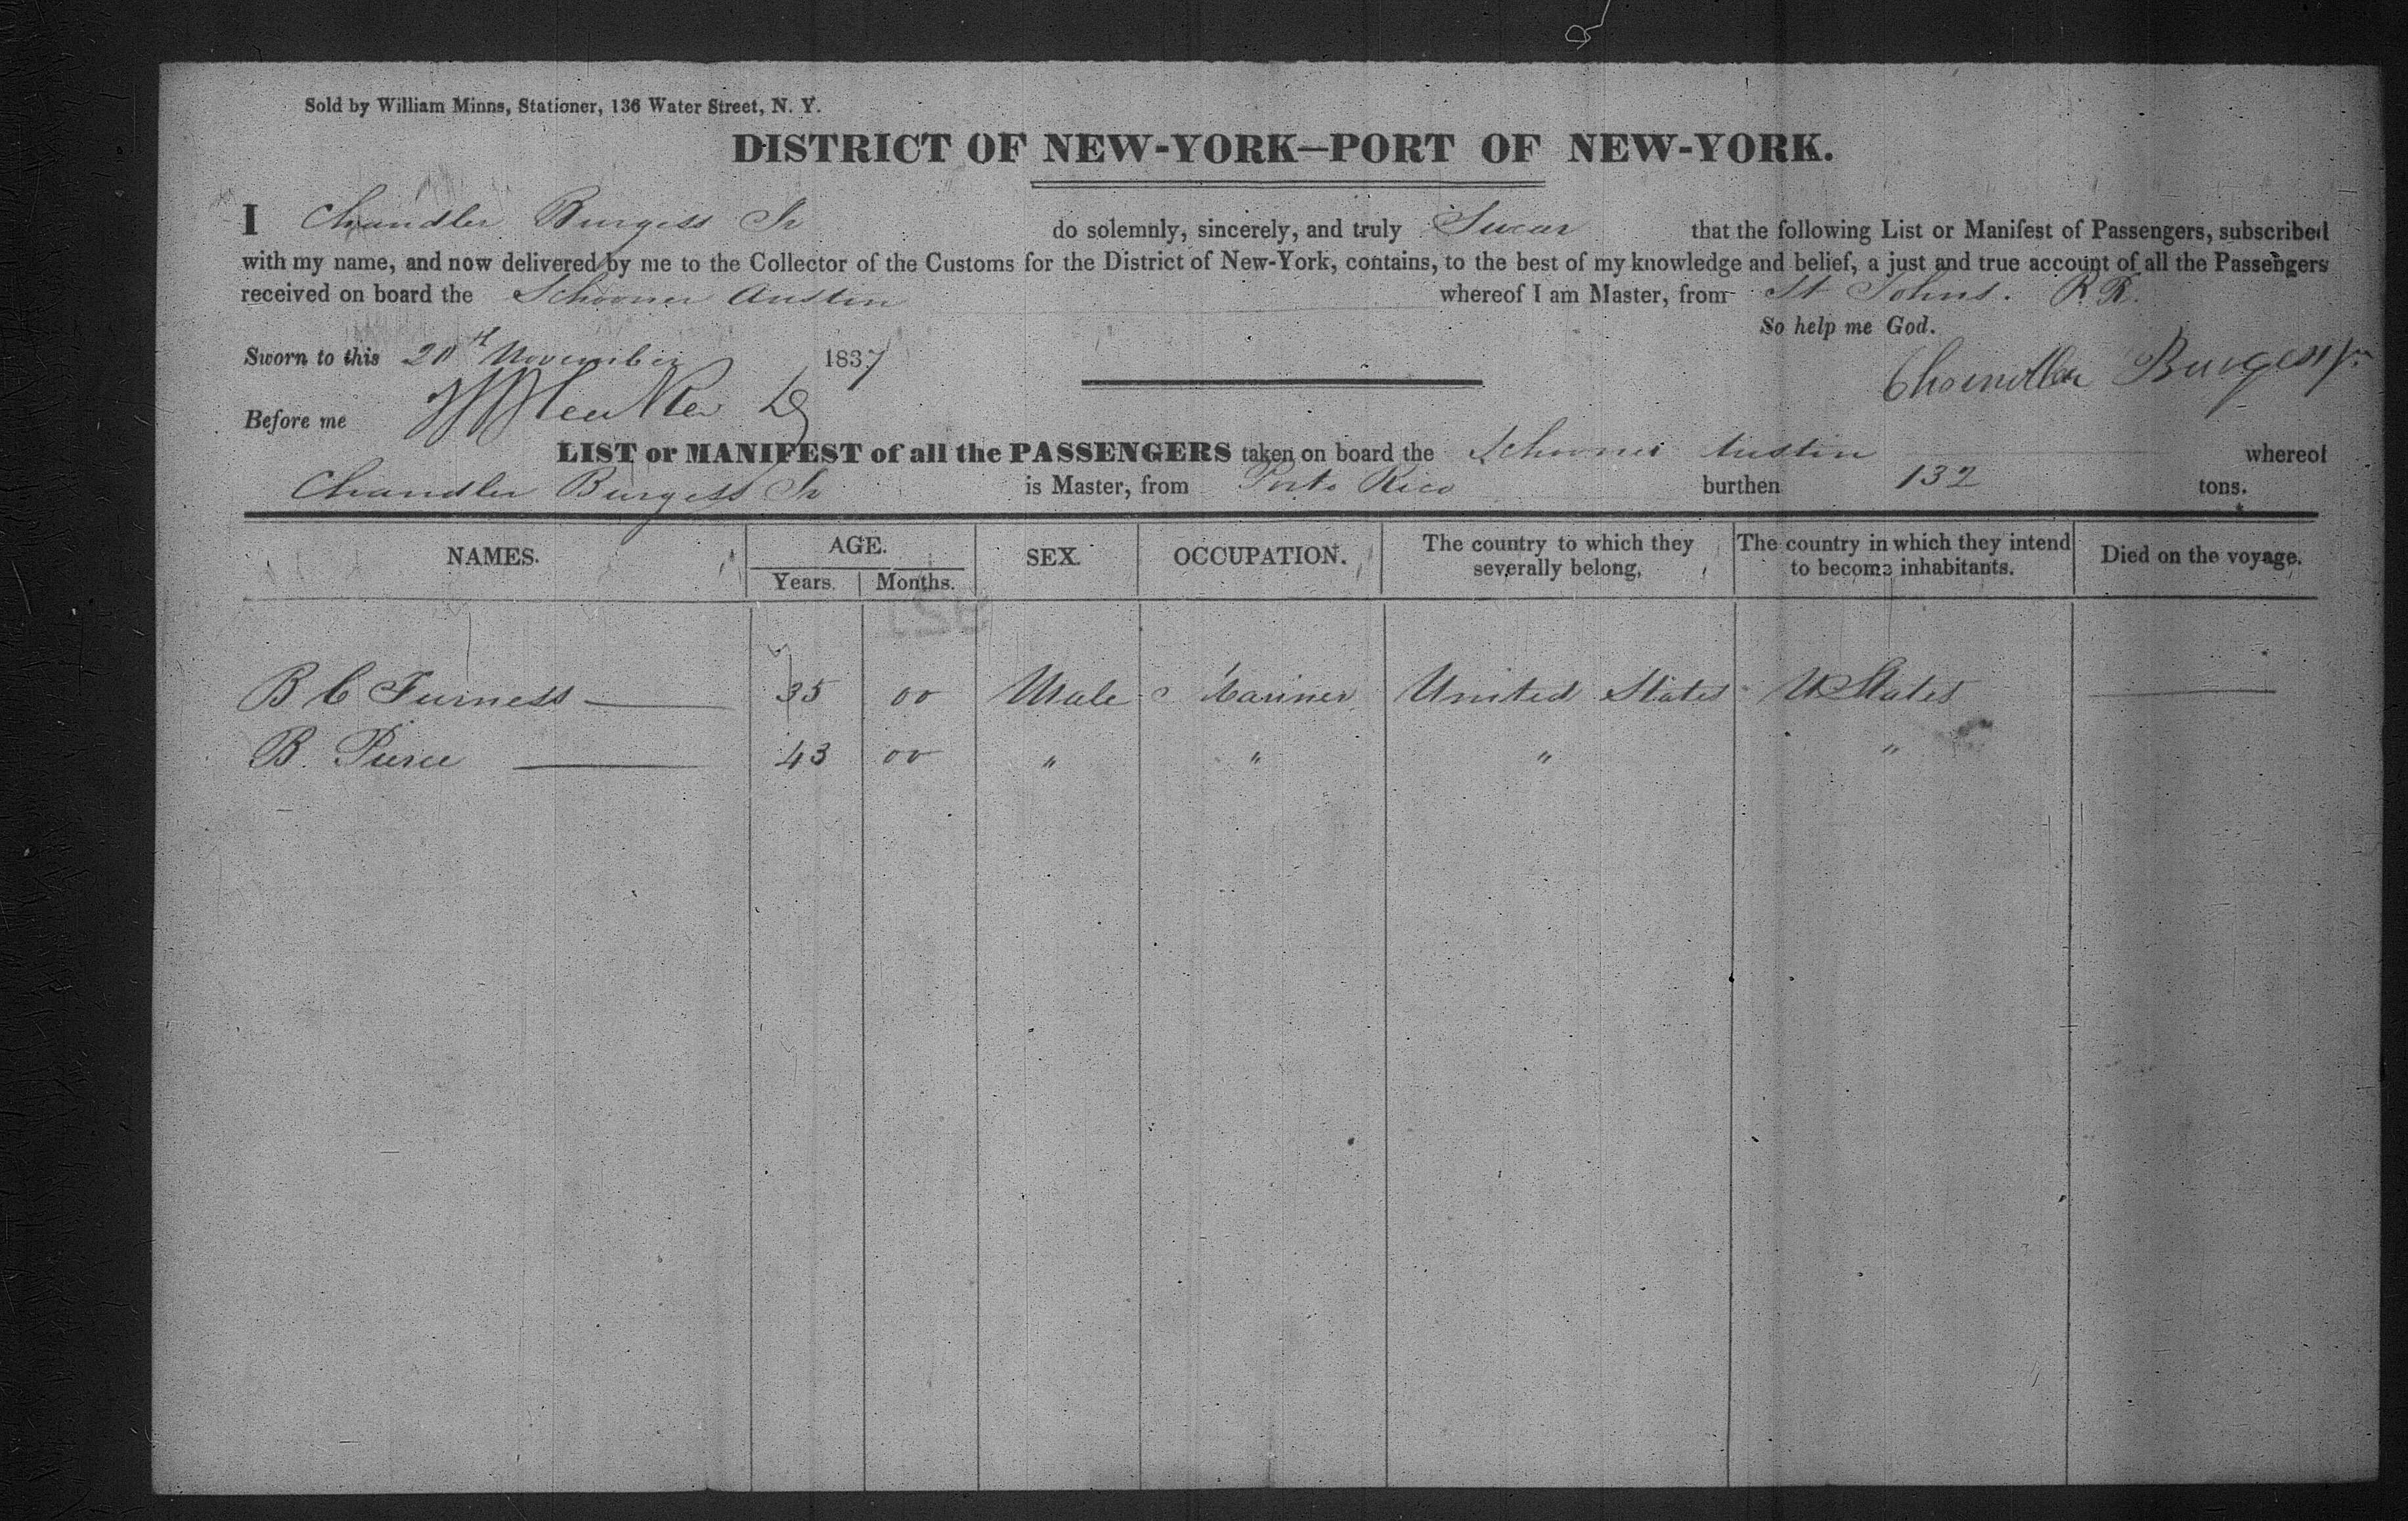 Sold by William Minns, Stationer, 136 Water Street, N. Y.
DISTRICT OF NEW-YORK—PORT OF NEW-YORK.
I Chandler Burgess Jr do solemnly, sincerely, and truly Swear that the following List or Manifest of Passengers, subscribed
with my name, and now delivered by me to the Collector of the Customs for the District of New-York, contains, to the best of my knowledge and belief, a just and true account of all the Passengers
received on board the Schooner Austin whereof I am Master, from St Johns. P.R.
So help me God.
Sworn to this November 1837
Chandler Burgess Jr
Before me
LIST or MANIFEST of all the PASSENGERS taken on board the Schooner Austin whereof
Chandler Burgess Jr is Master, from Porto Rico burthen 132 tons.
NAMES. AGE. SEX. OCCUPATION. The country to which they severally belong, The country in which they intend to become inhabitants. Died on the voyage.
Years. Months.
B C Furness 35 00 Male Mariner United States U States
B. Pierce 43 00 " " " "